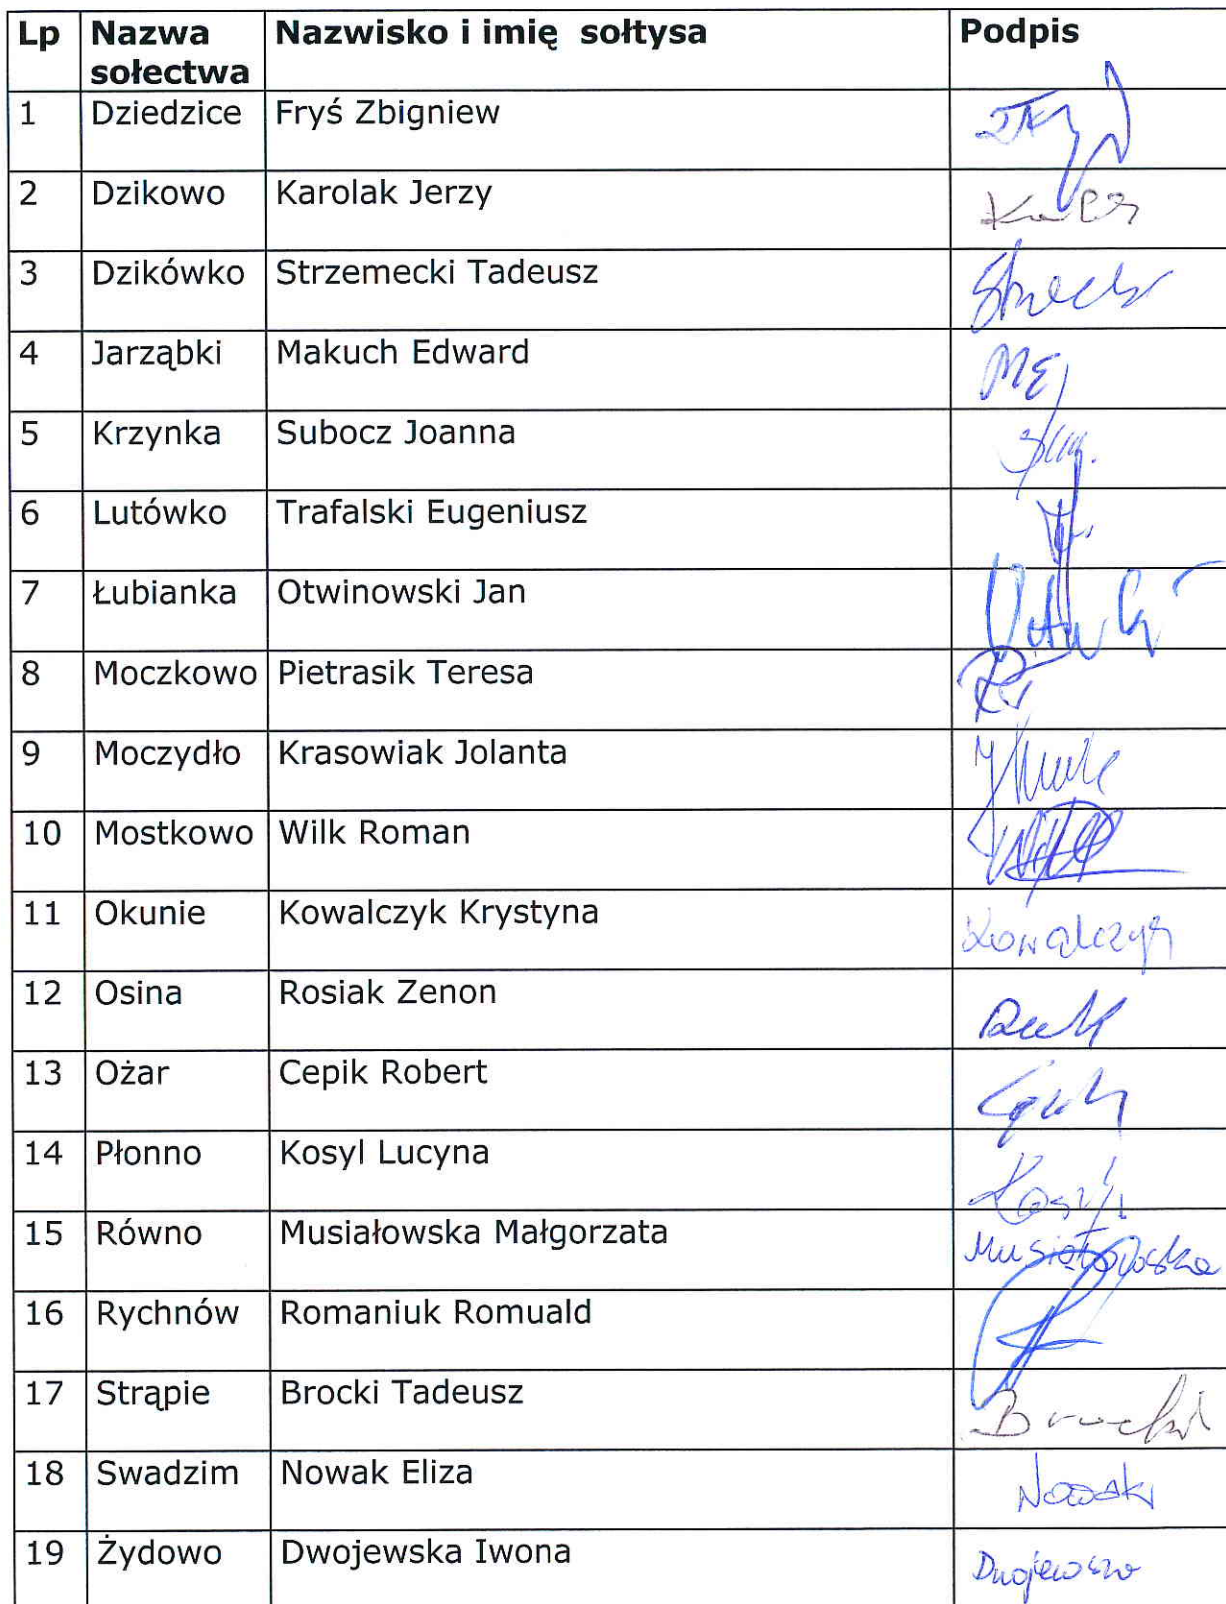 Lp Nazwa sołectwa Nazwisko i imię sołtysa Podpis
1 Dziedzice Fryś Zbigniew
2 Dzikowo Karolak Jerzy
3 Dzikówko Strzemecki Tadeusz
4 Jarząbki Makuch Edward ME
5 Krzynka Subocz Joanna
6 Lutówko Trafalski Eugeniusz
7 Łubianka Otwinowski Jan
8 Moczkowo Pietrasik Teresa
9 Moczydło Krasowiak Jolanta
10 Mostkowo Wilk Roman
11 Okunie Kowalczyk Krystyna Kowalczyk
12 Osina Rosiak Zenon
13 Ożar Cepik Robert
14 Płonno Kosyl Lucyna Kosyl
15 Równo Musiałowska Małgorzata Musiałowska
16 Rychnów Romaniuk Romuald
17 Strąpie Brocki Tadeusz Brocki
18 Swadzim Nowak Eliza Nowak
19 Żydowo Dwojewska Iwona Dwojewska